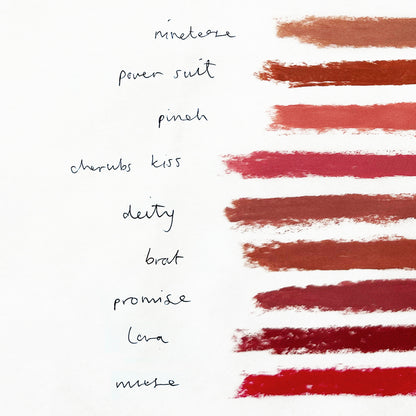 nineteaze
power suit
pinch
cherubs kiss
deity
brat
promise
Lana
muse